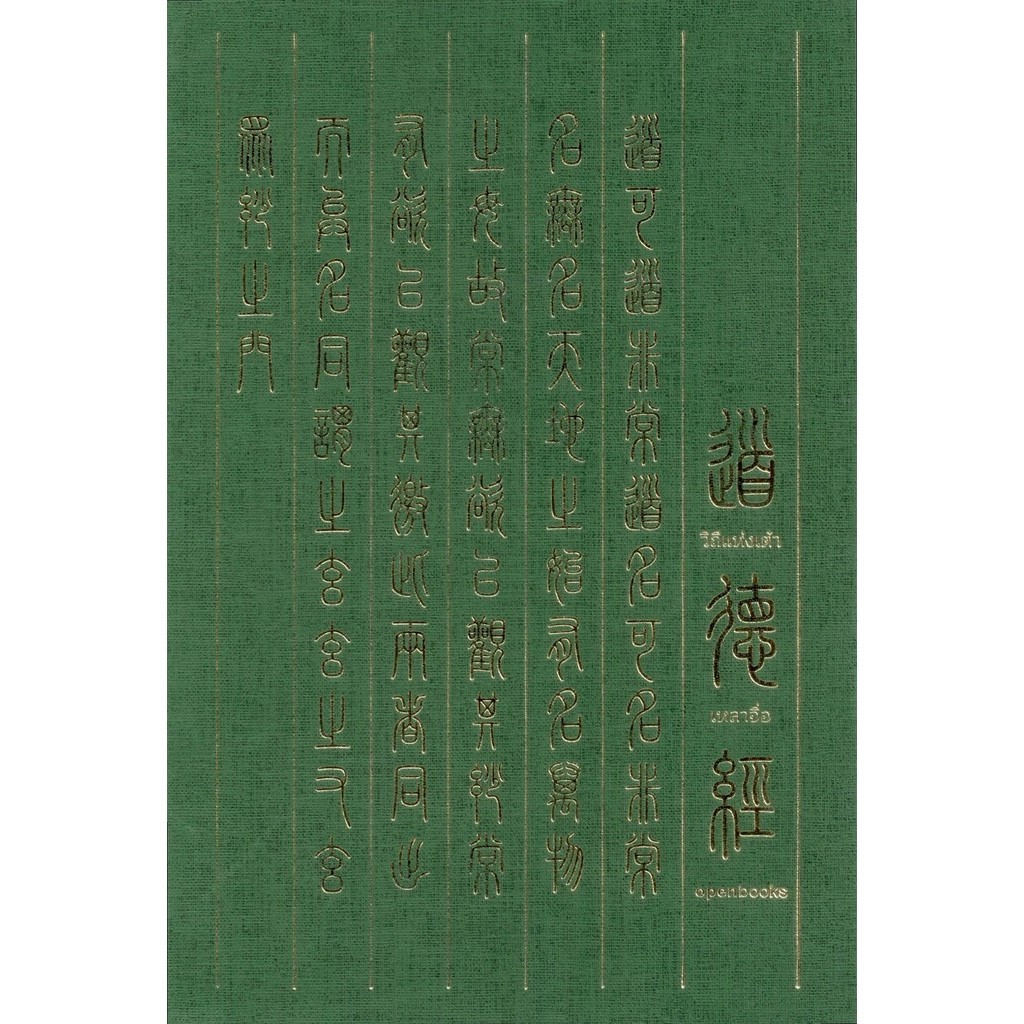 道
วิถีแห่งเต๋า
德
เหลาจื่อ
經
openbooks
道可道未常道名可名未常
名無名天地之始有名萬物
之母故常無欲以觀其妙常
有欲以觀其徼此兩者同出
而異名同謂之玄玄之又玄
眾妙之門